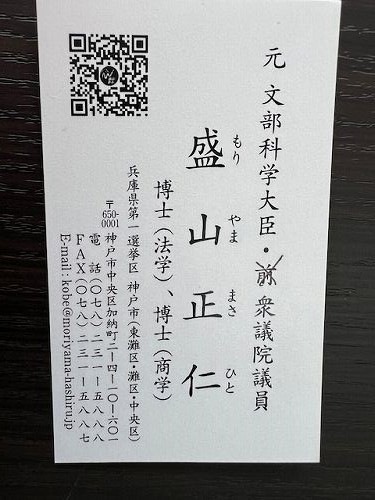 元 文部科学大臣・前衆議院議員
盛山正仁
もり やま まさ ひと
博士(法学)、博士(商学)
兵庫県第一選挙区 神戸市(東灘区・灘区・中央区)
〒650-0001 神戸市中央区加納町二-四-一〇-六〇一
電話(〇七八)二三一-五八八八
FAX(〇七八)二三一-五八八七
E-mail:kobe@moriyama-hashiru.jp